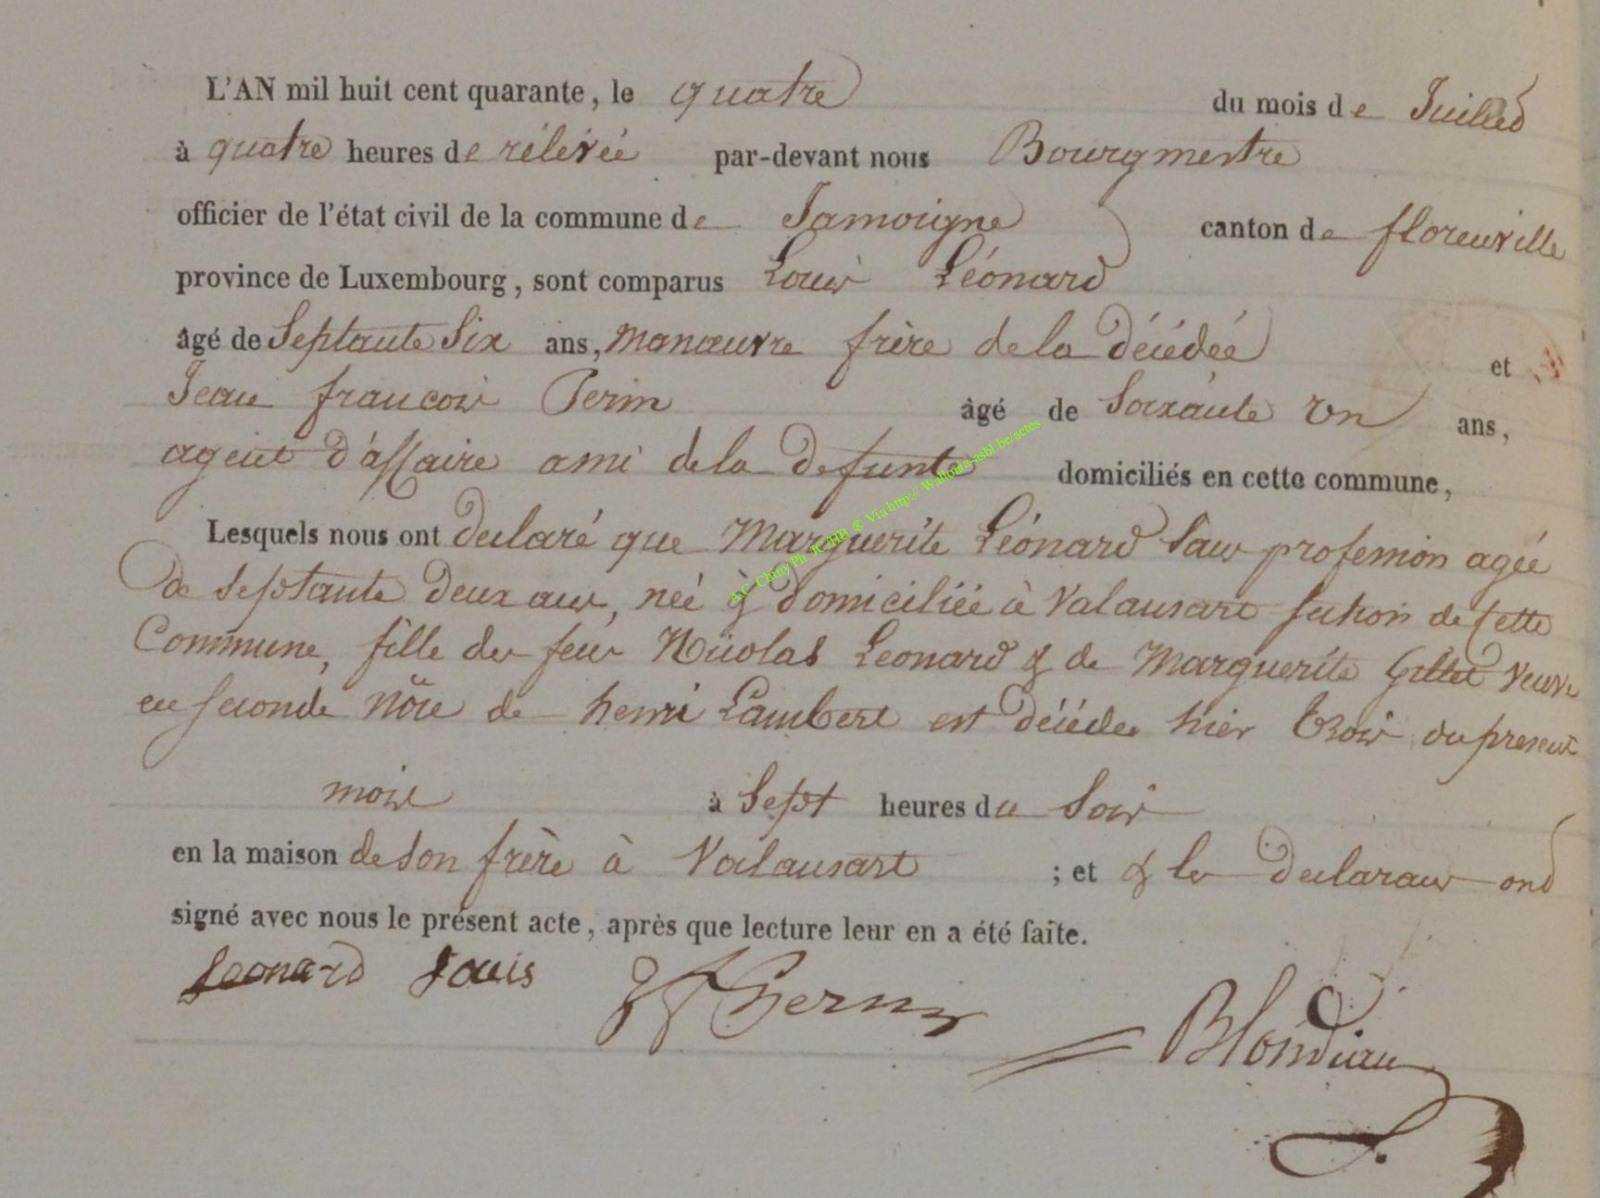 L'AN mil huit cent quarante, le quatre du mois de Juillet
à quatre heures de rélévée par-devant nous Bourgmestre
officier de l'état civil de la commune de Jamoigne canton de florenville
province de Luxembourg, sont comparus Louis Léonard
âgé de Septante Six ans, manœuvre frère de la décédée et
Jean francois Perin âgé de Soixante un ans,
agent d'affaire ami de la defunte domiciliés en cette commune,
Lesquels nous ont declaré que Marguerite Léonard Sans profession agée
de Septante deux ans, née & domiciliée à Valansart section de Cette
Commune, fille des feus Nicolas Leonard & de Marguerite Gillet veuve
en seconde nôce de henri Lambert est décédée hier trois du present
mois à Sept heures du Soir
en la maison de Son frère à Valansart ; et & les declarans ont
signé avec nous le présent acte, après que lecture leur en a été faite.
Leonard Louis JF Perin Blondiau
A.C. Chiny Ph. JC HB & Via http:// Wallonia-asbl.be/actes